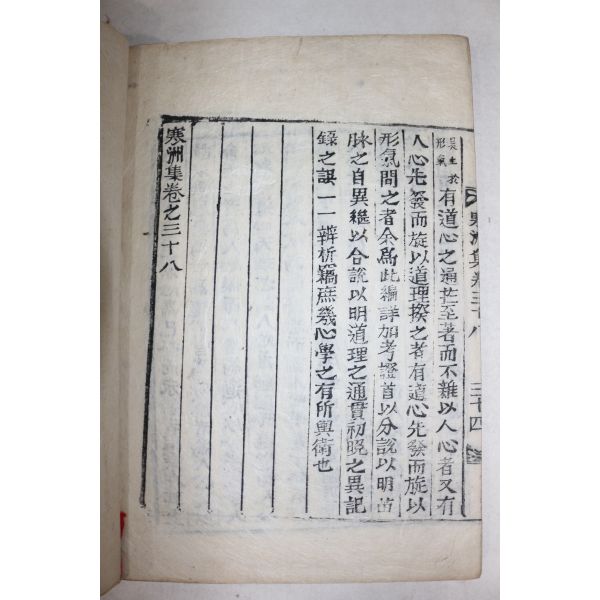 寒洲集卷三十八 三十四
是生於
形氣
有道心之通茫至著而不難以人心者又有
人心先發而旋以道理揆之者有道心先發而旋以
形氣間之者余爲此編詳加考證首以分說以明苗
脉之自異繼以合說以明道理之通貫初晚之異記
錄之誤一一辨析竊庶幾心學之有所輿衛也
寒洲集卷之三十八